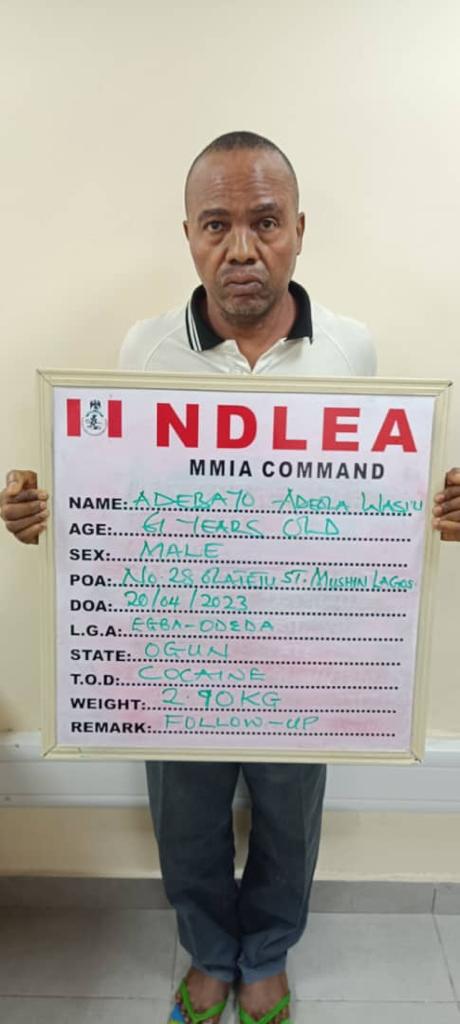 NDLEA
MMIA COMMAND
NAME: ADEBAYO ADEOLA WASIU
AGE: 61 YEARS OLD
SEX: MALE
POA: No. 28 OLAJEJU ST. MUSHIN LAGOS
DOA: 20/04/2023
L.G.A: EGBA-ODEDA
STATE: OGUN
T.O.D: COCAINE
WEIGHT: 2.90KG
REMARK: FOLLOW-UP